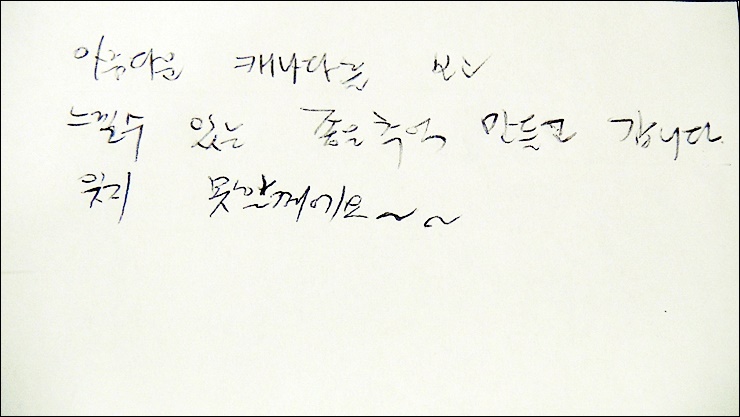 아름다운 캐나다를 보고
느낄수 있는 좋은추억 만들고 갑니다.
잊지 못할꺼에요~~